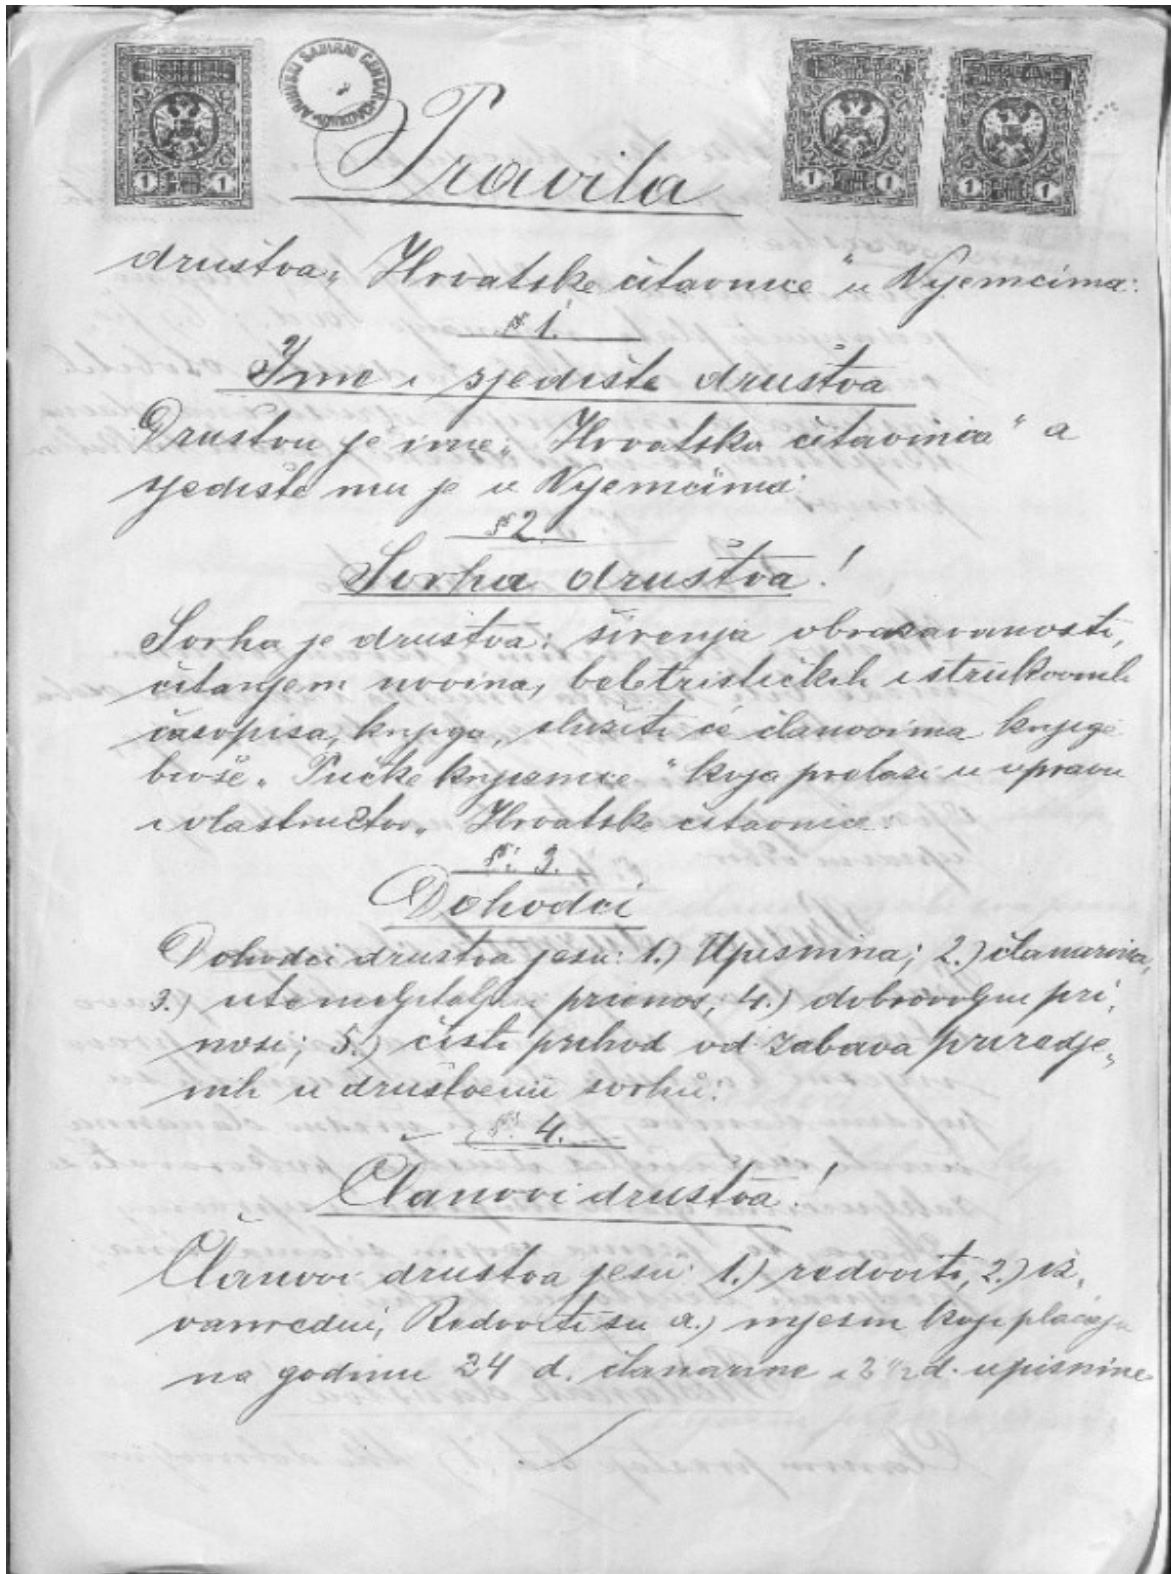 Pravila
društva „Hrvatske čitaonice“ u Nijemcima:
§ 1.
Ime i sjedište društva
Društvu je ime „Hrvatska čitaonica“ a
sjedište mu je u Nijemcima:
§ 2.
Svrha društva!
Svrha je društva: širenja obrazavanosti,
čitanjem novina, beletrističkih i strukovnih
časopisa, knjiga, služiti će članovima knjige
bivše „Pučke knjižnice“ koja prelazi u upravu
i vlastničtvo „Hrvatske čitaonice.
§: 3.
Dohodci
Dohodci društva jesu: 1.) Upisnina; 2.) članarina,
3.) utemeljiteljni prienos; 4.) dobrovoljni pri„
nosi; 5.) čisti prihod od zabava priredje„
nih u društvenu svrhu:
§: 4.
Članovi društva!
Članovi društva jesu: 1.) redoviti, 2.) iz„
vanredni, Redoviti su a.) mjesni koji plaćaju
na godinu 24 d. članarine i 2 1/2 d. upisnine
1
1
1
1
1
1